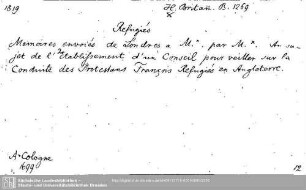 1819
H. Britan. B. 1269
x
Refugiés
Memoires envoiés de Londres a M.* par M.* Au su-
jet de l'Etablissement d'un Conseil pour veiller sur la
Conduite des Protestans François Refugiés en Angleterre.
A Cologne
1699
12
Sächsische Landesbibliothek -
Staats- und Universitätsbibliothek Dresden